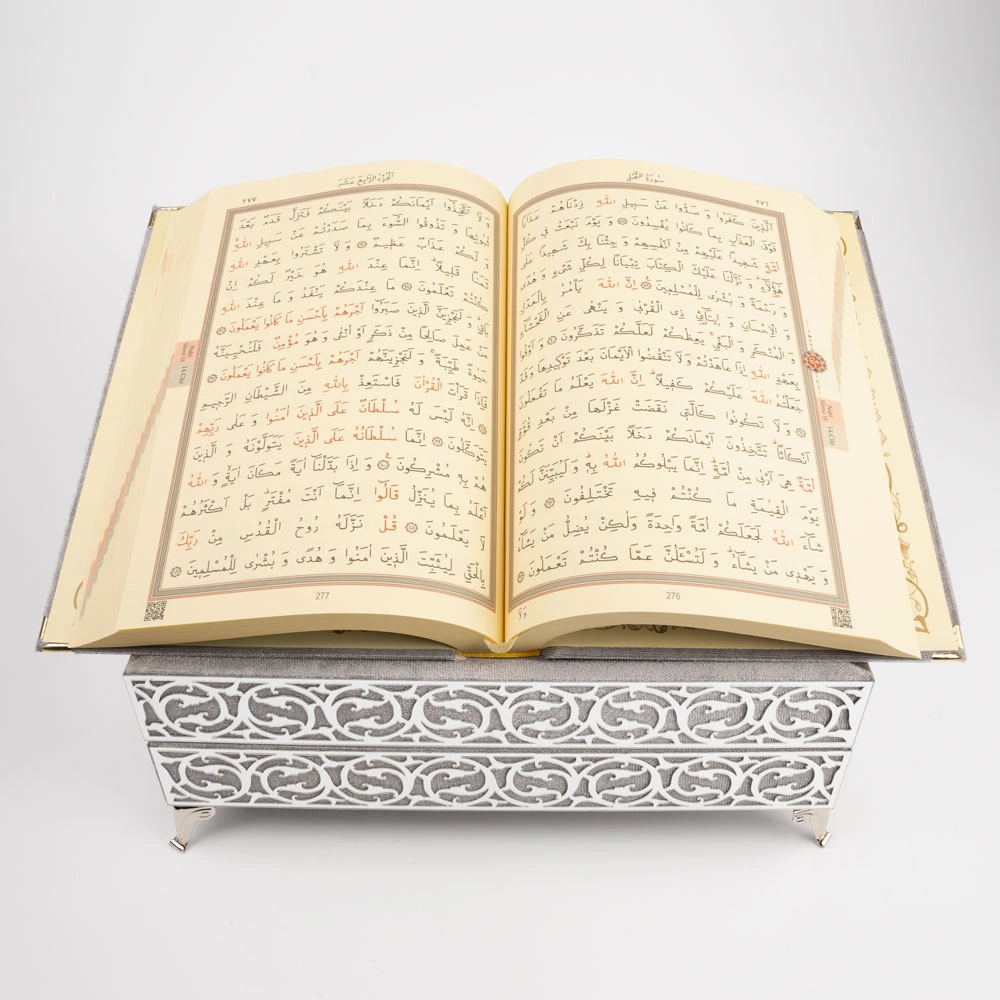 ٢٧٦
سورة النحل
اَلَّذِينَ كَفَرُوا وَ صَدُّوا عَنْ سَبِيلِ اللّٰهِ زِدْنَاهُمْ عَذَابًا
فَوْقَ الْعَذَابِ بِمَا كَانُوا يُفْسِدُونَ وَ يَوْمَ نَبْعَثُ فِي كُلِّ
اُمَّةٍ شَهِيدًا عَلَيْهِمْ مِنْ اَنْفُسِهِمْ وَ جِئْنَا بِكَ شَهِيدًا عَلٰى
هٰٓؤُلَٓاءِ وَ نَزَّلْنَا عَلَيْكَ الْكِتَابَ تِبْيَانًا لِكُلِّ شَيْءٍ وَ هُدًى
وَ رَحْمَةً وَ بُشْرٰى لِلْمُسْلِمِينَ اِنَّ اللّٰهَ يَاْمُرُ بِالْعَدْلِ
وَ الْاِحْسَانِ وَ اِيتَٓائِ ذِي الْقُرْبٰى وَ يَنْهٰى عَنِ الْفَحْشَٓاءِ
وَ الْمُنْكَرِ وَ الْبَغْيِ يَعِظُكُمْ لَعَلَّكُمْ تَذَكَّرُونَ وَ اَوْفُوا
بِعَهْدِ اللّٰهِ اِذَا عَاهَدْتُمْ وَلَا تَنْقُضُوا الْاَيْمَانَ بَعْدَ تَوْكِيدِهَا وَ قَدْ
جَعَلْتُمُ اللّٰهَ عَلَيْكُمْ كَفِيلًا اِنَّ اللّٰهَ يَعْلَمُ مَا تَفْعَلُونَ
وَ لَا تَكُونُوا كَالَّتِي نَقَضَتْ غَزْلَهَا مِنْ بَعْدِ قُوَّةٍ
اَنْكَاثًا تَتَّخِذُونَ اَيْمَانَكُمْ دَخَلًا بَيْنَكُمْ اَنْ تَكُونَ
اُمَّةٌ هِيَ اَرْبٰى مِنْ اُمَّةٍ اِنَّمَا يَبْلُوكُمُ اللّٰهُ بِهِ وَ لَيُبَيِّنَنَّ لَكُمْ
يَوْمَ الْقِيٰمَةِ مَا كُنْتُمْ فِيهِ تَخْتَلِفُونَ وَ لَوْ
شَٓاءَ اللّٰهُ لَجَعَلَكُمْ اُمَّةً وَاحِدَةً وَلٰكِنْ يُضِلُّ مَنْ يَشَٓاءُ
وَ يَهْدِي مَنْ يَشَٓاءُ وَ لَتُسْئَلُنَّ عَمَّا كُنْتُمْ تَعْمَلُونَ
وَلَا
276
14.Cüz
الجزء الرابع عشر
٢٧٧
وَ لَا تَتَّخِذُٓوا اَيْمَانَكُمْ دَخَلًا بَيْنَكُمْ فَتَزِلَّ قَدَمٌ بَعْدَ
ثُبُوتِهَا وَ تَذُوقُوا السُّٓوءَ بِمَا صَدَدْتُمْ عَنْ سَبِيلِ اللّٰهِ
وَ لَكُمْ عَذَابٌ عَظِيمٌ وَ لَا تَشْتَرُوا بِعَهْدِ اللّٰهِ
ثَمَنًا قَلِيلًا اِنَّمَا عِنْدَ اللّٰهِ هُوَ خَيْرٌ لَكُمْ اِنْ
كُنْتُمْ تَعْلَمُونَ مَا عِنْدَكُمْ يَنْفَدُ وَ مَا عِنْدَ اللّٰهِ
بَاقٍ وَ لَنَجْزِيَنَّ الَّذِينَ صَبَرُٓوا اَجْرَهُمْ بِاَحْسَنِ مَا كَانُوا يَعْمَلُونَ
مَنْ عَمِلَ صَالِحًا مِنْ ذَكَرٍ اَوْ اُنْثٰى وَهُوَ مُؤْمِنٌ فَلَنُحْيِيَنَّهُ
حَيٰوةً طَيِّبَةً وَ لَنَجْزِيَنَّهُمْ اَجْرَهُمْ بِاَحْسَنِ مَا كَانُوا يَعْمَلُونَ
فَاِذَا قَرَاْتَ الْقُرْاٰنَ فَاسْتَعِذْ بِاللّٰهِ مِنَ الشَّيْطَانِ الرَّجِيمِ
اِنَّهُ لَيْسَ لَهُ سُلْطَانٌ عَلَى الَّذِينَ اٰمَنُوا وَ عَلٰى رَبِّهِمْ
يَتَوَكَّلُونَ اِنَّمَا سُلْطَانُهُ عَلَى الَّذِينَ يَتَوَلَّوْنَهُ وَ الَّذِينَ
هُمْ بِهِ مُشْرِكُونَ وَ اِذَا بَدَّلْنَٓا اٰيَةً مَكَانَ اٰيَةٍ وَ اللّٰهُ
اَعْلَمُ بِمَا يُنَزِّلُ قَالُٓوا اِنَّمَٓا اَنْتَ مُفْتَرٍ بَلْ اَكْثَرُهُمْ
لَا يَعْلَمُونَ قُلْ نَزَّلَهُ رُوحُ الْقُدُسِ مِنْ رَبِّكَ
بِالْحَقِّ لِيُثَبِّتَ الَّذِينَ اٰمَنُوا وَ هُدًى وَ بُشْرٰى لِلْمُسْلِمِينَ
277
14.Cüz